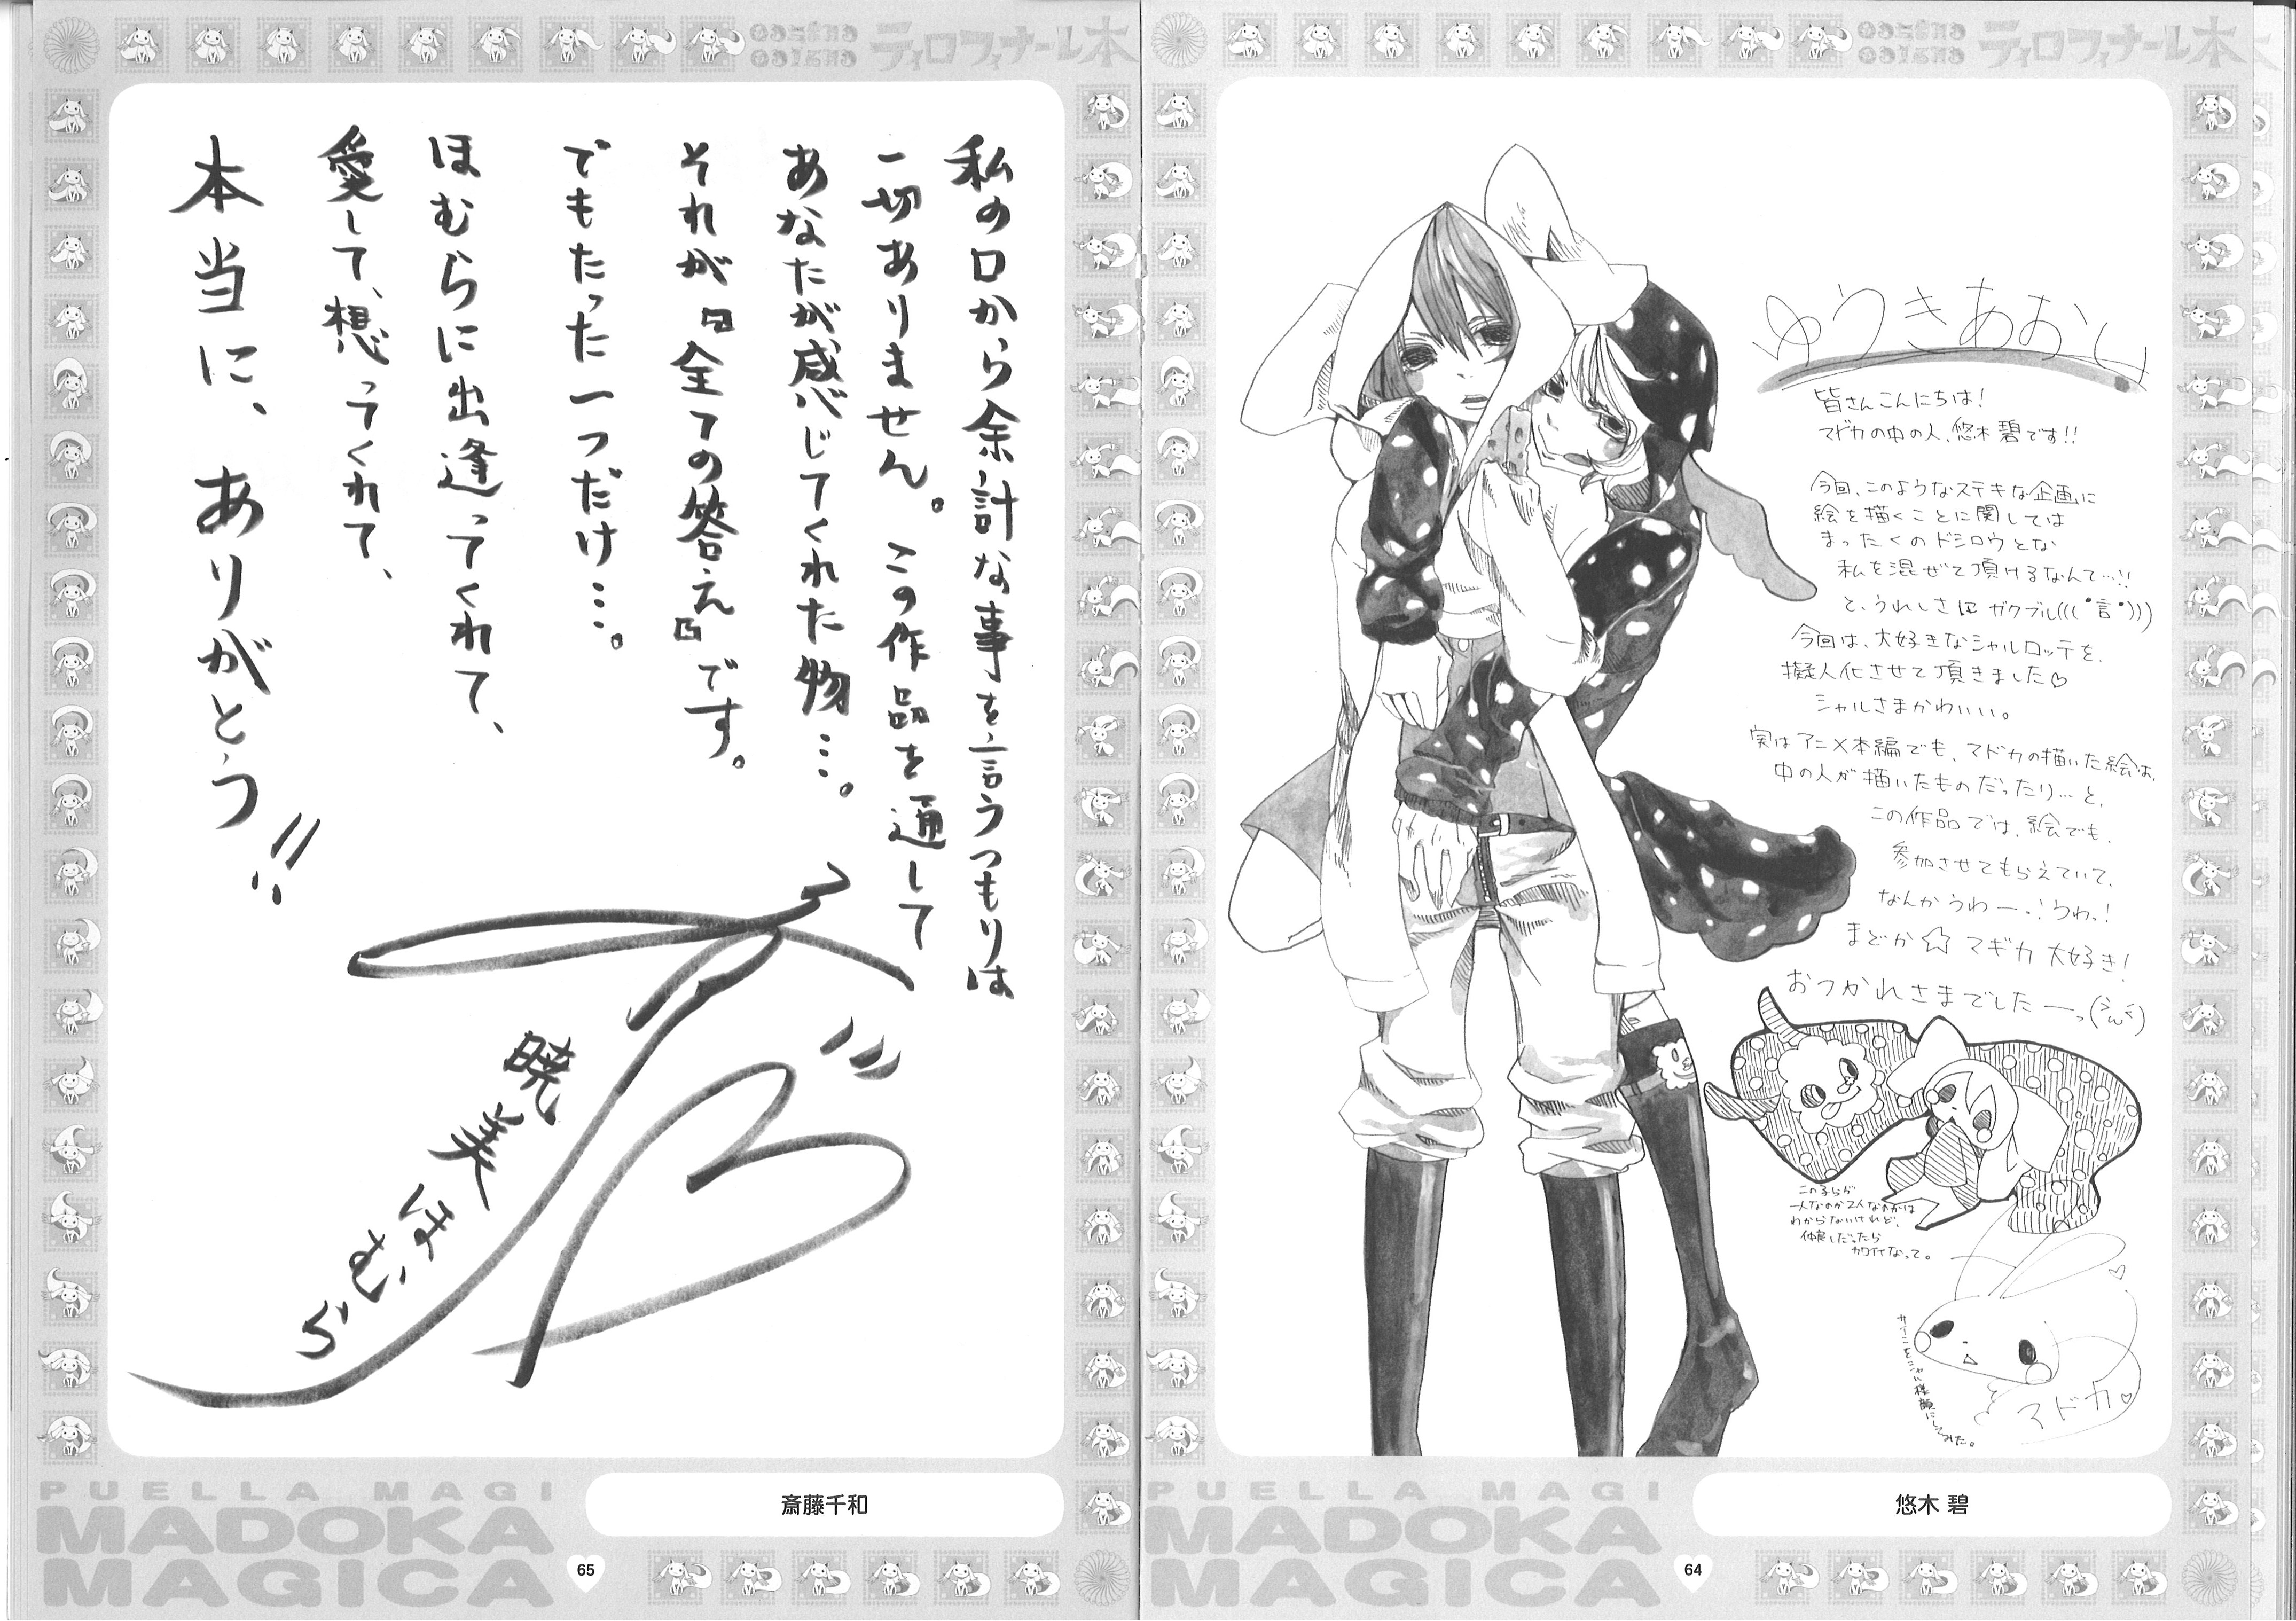 ティロフィナーレ本
悠木 碧
64
PUELLA MAGI
MADOKA
MAGICA
ゆうきあおい
皆さんこんにちは!
マドカの中の人、悠木 碧です!!
今回、このようなステキな企画に
絵を描くことに関しては
まったくのドシロウとな
私を混ぜて頂けるなんて…!!
と、うれしさ
ガクブル(((・言・)))
今回は、大好きなシャルロッテを、
擬人化させて頂きました♡
シャルさまかわいいい。
実はアニメ本編でも、マドカの描いた絵は、
中の人が描いたものだったり…と、
この作品では、絵でも、
参加させてもらえていて、
なんかうわーっ!うわっ!
まどか☆マギカ 大好き!
おつかれさまでしたーっ
この子らが
一人なのか2人なのかは
わからないけれど、
仲良しだったら
カワイイなって。
マドカ♡
ティロフィナーレ本
私の口から余計な事を言うつもりは
一切ありません。この作品を通して
あなたが感じてくれた物…。
それが『全ての答え』です。
でもたった一つだけ…。
ほむらに出逢ってくれて、
愛して、想ってくれて、
本当に、ありがとう!!
暁美ほむら
斎藤千和
65
PUELLA MAGI
MADOKA
MAGICA